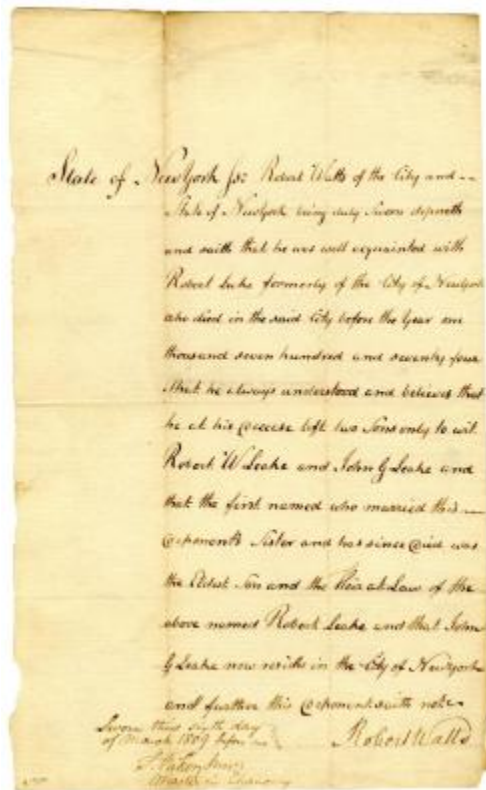 State of New York ss: Robert Watts of the City and --
State of New York being duly Sworn deposeth
and saith that he was well acquainted with
Robert Leake formerly of the City of New York
who died in the said City before the Year one
thousand seven hundred and seventy four
that he always understood and believes that
he at his decease left two Sons only to wit.
Robert W Leake and John G Leake and
that the first named who married this
deponents Sister and has since died was
the Eldest Son and the Heir at Law of the
above named Robert Leake and that John
G Leake now resides in the City of New York
and further this deponent saith not -
Sworn this sixth day
of March 1809 before me
Robert Watts
Master in Chancery